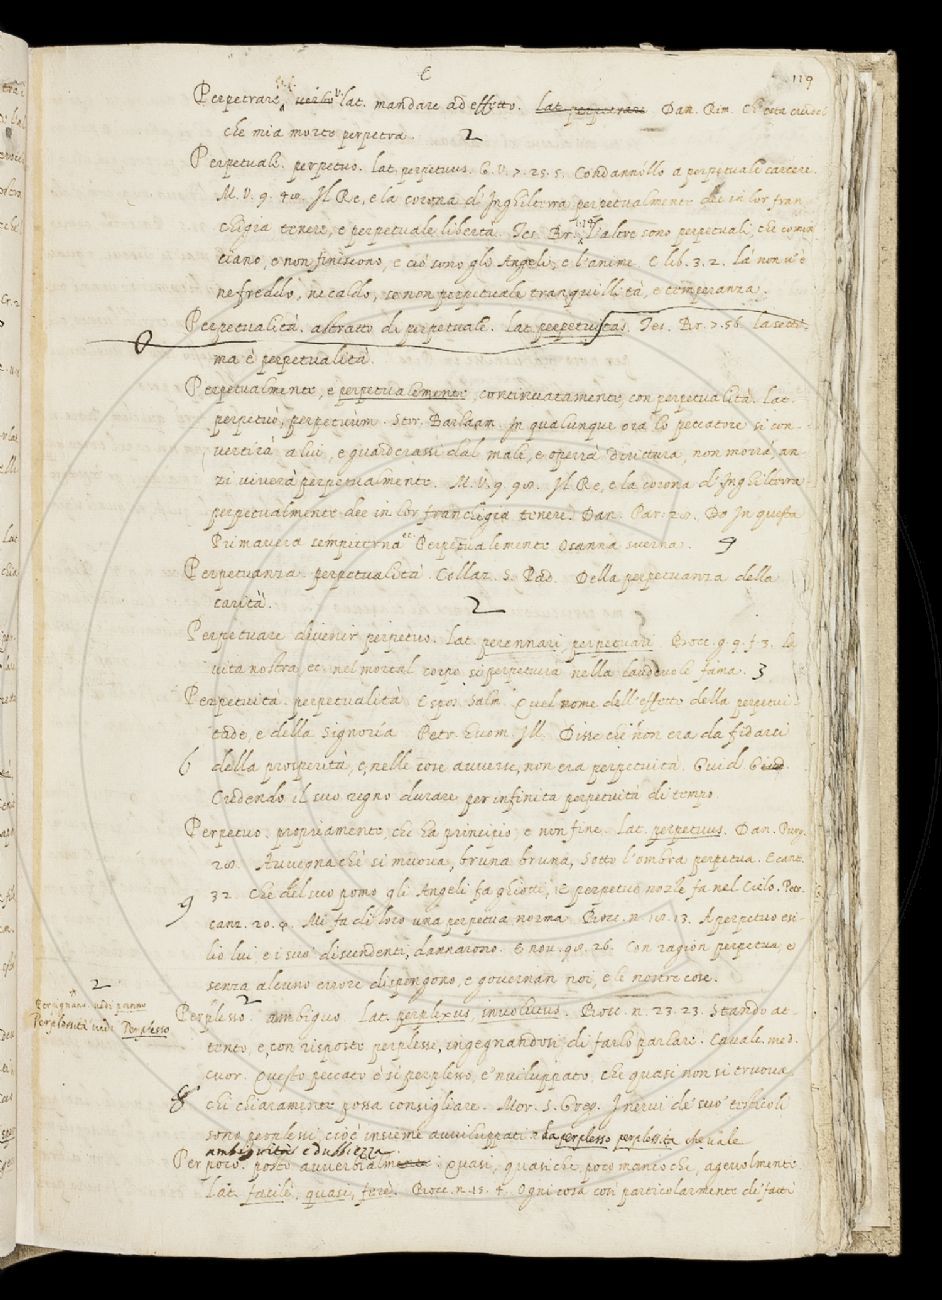 119
Perpetrare, verbo lat. mandare ad effetto. Lat. perpetrare Dan. Rim.
che mia morte perpetra. 2
Perpetuale. perpetuo. Lat. perpetuus. G. V. 7. 25. 5. Condannollo a perpetuale carcere.
M. V. 9. 98. Il Re, e la corona d'Inghilterra perpetualmente dee in lor fran
chigia tenere, e perpetuale libertà. Tes. Br. L'altre sono perpetuali, che comin
ciano, e non finiscono, e ciò sono gli Angeli, e l'anime E lib. 3. 2. Là non v'è
ne freddo, ne caldo, se non perpetuale tranquillità, e temperanza.
Perpetualità. astratto di perpetuale. Lat. perpetuitas. Tes. Br. 7. 56. La setti-
ma è perpetualità.
Perpetualmente, e perpetualemente, continuatamente, con perpetualità. Lat.
perpetuò, perpetuùm. Stor. Barlaam. In qualunque ora lo peccatore si con-
vertirà a lui, e guarderassi dal male, e operrà dirittura, non morrà, an-
zi viverà perpetualmente. M. V. 9. 98. Il Re, e la corona d'Inghilterra
perpetualmente dee in lor franchigia tenere. Dan. Par. 28. Do In questa
Primavera sempiterna et Perpetualemente Osanna sverna. 9
Perpetuanza. perpetualità. Collaz. S. Pad. Della perpetuanza della
carità.
2
Perpetuare divenir perpetuo. Lat. perennari, perpetuari Bocc. g. 9. f. 3. La
vita nostra, etc. nel mortal corpo, si perpetuerà nella laudevole fama. 3
Perpetuità. perpetualità Espos. Salm. Quel nome dell'effetto della perpetui
tade, e della Signoria Petr. Huom. Ill. Disse che non era da fidarsi
6 della prosperità, e, nelle cose avverse, non era perpetuità. Guid. Giud.
Credendo il suo regno durare per infinita perpetuità di tempo.
Perpetuo. propriamente, che ha principio, e non fine. Lat. perpetuus. Dan. Purg.
28. Avvegna chè si muova, bruna bruna, Sotto l'ombra perpetua. E cant.
9 32. Che del suo pomo gli Angeli fa ghiotti, E perpetue nozze fa nel Cielo. Petr.
canz. 20. 4. Mi fa di loro una perpetua norma Bocc. n. 18. 13. A perpetuo esi-
lio lui, e i suoi discendenti, dannarono. E nov. 98. 26. Con ragion perpetua, e
senza alcuno errore dispongono, e governan noi, e le nostre cose.
2
Perplessità vedi Perplesso
2
Perplesso. ambiguo. Lat. perplexus, involutus. Bocc. n. 23. 23. Stando at-
tento, e, con risposte perplesse, ingegnandosi di farlo parlare. Cavalc. med.
cuor. Questo peccato è sì perplesso, e 'nviluppato, che quasi non si truova
8 chi chiaramente possa consigliare. Mor. S. Greg. I nervi de' suoi testicoli
sono perplessi cioè insieme avviluppati. Da perplesso perplessità che vale
ambiguità e dubbiezza.
Per poco. posto avverbialmente: quasi, quasi che, poco manco che, agevolmente.
Lat. facilè, quasi, ferè. Bocc. n. 15. 4. Ogni cosa così particolarmente de' fatti